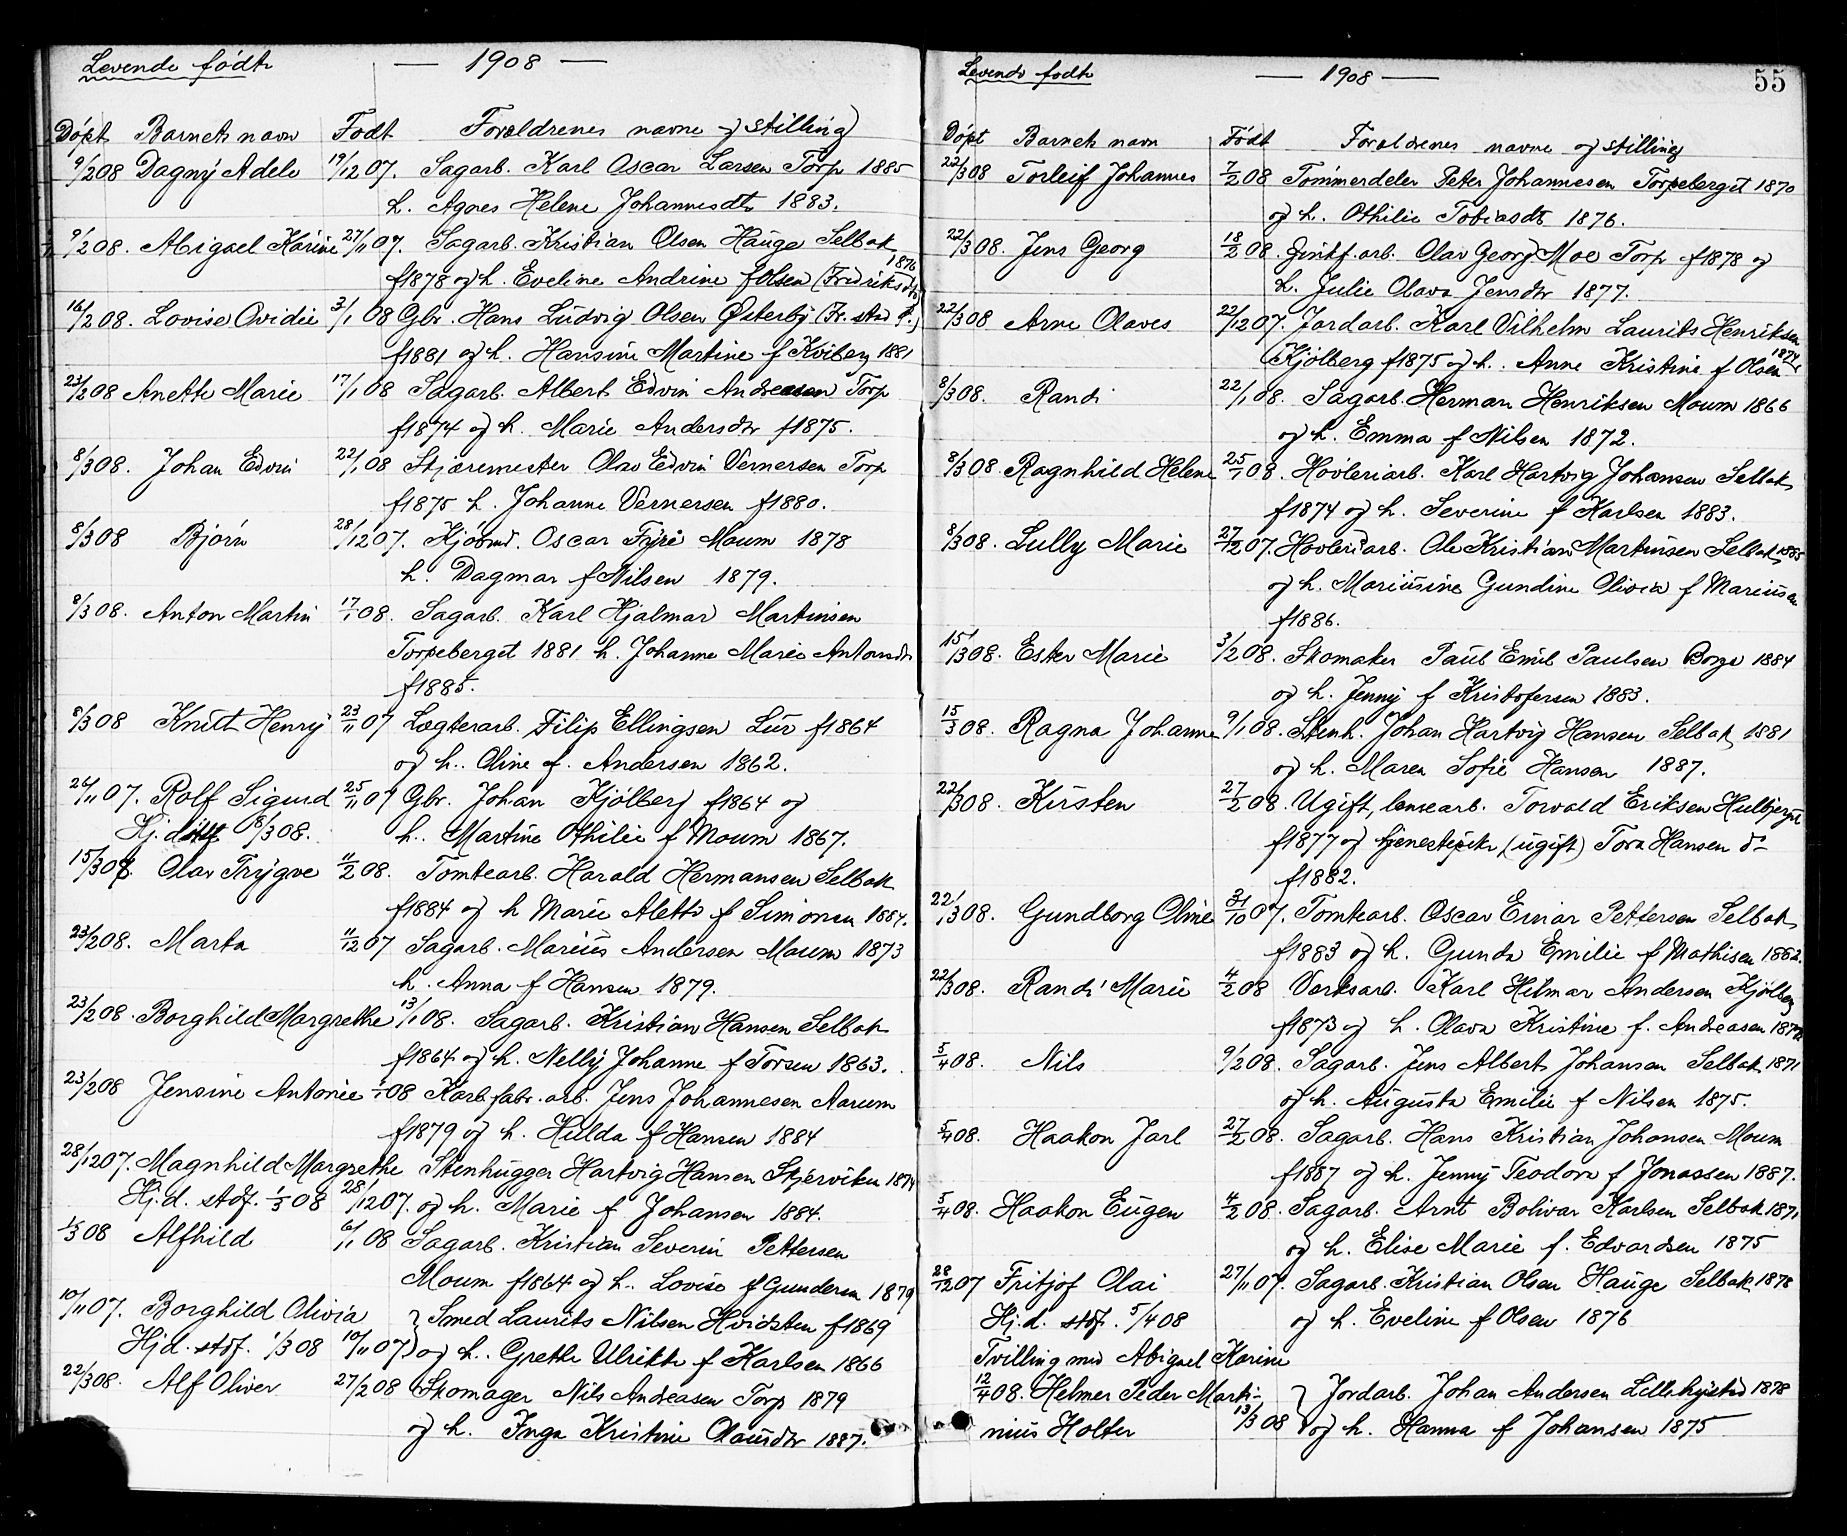 Levende fødte — 1908 —
Døpt Barnets navn Født Forældrenes navne og stilling
9/2 08 Dagny Adele 19/12 07. Sagarb. Karl Oscar Larsen Torp 1885
h. Agnes Helene Johannesdtr 1883.
9/2 08. Abigael Karine 27/11 07. Sagarb. Kristian Olsen Hauge Selbak
f 1878 og h. Eveline Andrine f Olsen (Fredriksdtr) 1876
16/2 08. Lovise Ovidie 3/1 08 Gbr. Hans Ludvig Olsen Østerby (Fr. stad)
f 1881 og h. Hansine Martine f Kviberg 1881
23/2 08 Anette Marie 17/1 08 Sagarb. Albert Edvin Andreasen Torp
f 1874 og h. Marie Andersdtr f 1875.
8/3 08. Johan Edvin 22/1 08 Skjæremester Olav Edvin Vernersen Torp
f 1875 h. Johanne Vernersen f 1880.
8/3 08 Bjørn 28/12 07. Kjøbmd. Oscar Fyrie Moum 1878
h. Dagmar f Nilsen 1879.
8/3 08. Anton Martin 17/1 08. Sagarb. Karl Hjalmar Martinsen
Torpeberget 1881 h. Johanne Marie Antonsdtr
f 1885.
8/3 08 Knut Henry 23/11 07 Lægterarb. Filip Ellingsen Lur f 1864
og h. Oline f. Andersen 1862.
24/11 07. Rolf Sigurd 25/11 07 Gbr. Johan Kjølberg f 1864 og
Hj. døbt 8/3 08. h. Martine Othilie f Moum 1867.
15/3 08. Olav Trygve 11/2 08. Tomtearb. Harald Hermansen Selbak
f 1884 og h Marie Alette f Simonsen 1884.
23/2 08. Marta 11/12 07 Sagarb. Marius Andersen Moum 1873
h. Anna f Hansen 1879.
23/2 08. Borghild Margrethe 13/1 08. Sagarb. Kristian Hansen Selbak
f 1864 og h. Nelly Johanne f Torsen 1863.
23/2 08 Jensine Antonie 08 Karb.fabr.arb. Jens Johannesen Aarum
f 1879 og h. Hulda f Hansen 1884
28/12 07. Magnhild Margrethe Stenhugger Hartvig Hansen Skjærviken 1874
Hj.d. stdf. 1/3 08 28/12 07. og h. Marie f Johansen 1884.
1/3 08 Alfhild 6/1 08 Sagarb. Kristian Severin Pettersen
Moum f 1864 og h. Lovise f Gundersen 1879
10/11 07. Borghild Olivia } Smed Laurits Nilsen Hvidsten f 1869
Hj.d. stdf. 1/3 08 10/11 07) og h. Grethe Ulrikke f Karlsen 1866
22/3 08. Alf Oliver 27/2 08 Skomager Nils Andreasen Torp 1879
og h. Inga Kristine Olausdtr 1887.
Levende fødte — 1908 — 55
Døpt Barnets navn Født Forældrenes navne og stilling
22/3 08 Torleif Johannes 7/2 08 Tømmerdeler Peter Johannesen Torpeberget 1870
og h. Othilie Tobiasdtr 1876.
22/3 08. Jens Georg 18/2 08. arb. Olav Georg Moe Torp f 1878 og
h. Julie Olava Jensdtr 1877.
22/3 08 Arne Olaves 22/12 07. Jordarb. Karl Vilhelm Laurits Henriksen
Kjølberg f 1875 og h. Anne Kristine f Olsen 1874
8/3 08. Randi 22/1 08. Sagarb. Herman Henriksen Moum 1866
og h. Emma f Nilsen 1872.
8/3 08. Ragnhild Helene 25/1 08. Høvleriarb. Karl Hartvig Johansen Selbak
f 1874 og h. Severine f Karlsen 1883.
8/3 08. Lully Marie 27/12 07. Høvleriarb. Ole Kristian Martinsen Selbak 1885
og h. Mariusine Gundine Olivia f Mariussen
f 1886.
15/3 08. Ester Marie 3/2 08. Skomaker Paul Emil Paulsen Borge 1884
og h. Jenny f Kristofersen 1883.
15/3 08. Ragna Johanne 9/1 08. Stenh. Johan Hartvig Hansen Selbak 1881
og h. Maren Sofie Hansen 1887.
22/3 08. Kirsten 27/2 08. Ugift, lensearb. Torvald Eriksen
f 1877 og tjenestepike (ugift) Tora Hansen do
f 1882.
22/3 08. Gundborg Oline 31/10 07. Tomtearb. Oscar Einar Pettersen Selbak
f 1883 og h. Gunda Emilie f Mathisen 1882.
22/3 08. Randi Marie 4/2 08 Værksarb. Karl Hilmar Andersen Kjølberg
f 1873 og h. Olava Kristine f. Andreasen
5/4 08. Nils 9/2 08. Sagarb. Jens Albert Johansen Selbak 1871
og h. Augusta Emilie f Nilsen 1875.
5/4 08. Haakon Jarl 27/2 08. Sagarb. Hans Kristian Johansen Moum
f 1887 og h. Jenny Teodora f Jonassen 1887.
5/4 08. Haakon Eugen 4/2 08. Sagarb. Arnt Bolivar Karlsen Selbak 1871
og h. Elise Marie f. Edvardsen 1875
28/12 07 Fritjof Olai 27/11 07. Sagarb. Kristian Olsen Hauge Selbak 1878
Hj.d. stdf. 5/4 08 og h. Eveline f Olsen 1876
Tvilling med Abigael Karine
12/4 08. Helmer Peder Marti- } Jordarb. Johan Andersen Lillehystad 1878
nius Holter 13/3 08 og h. Hanna f Johansen 1875